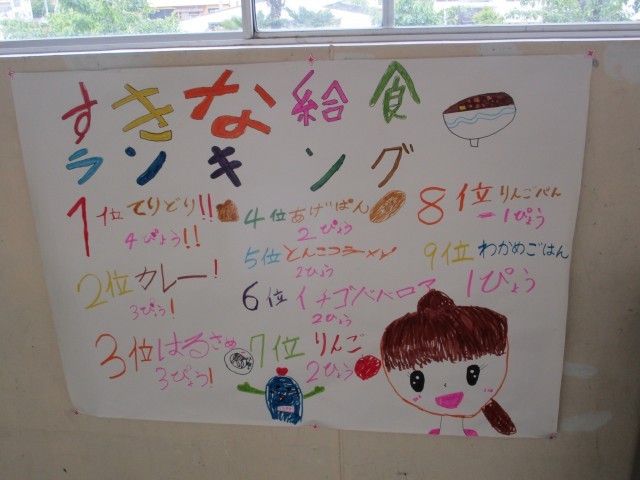 すきな給食
ランキング
1位 てりどり!!
4ぴょう!!
2位 カレー!
3ぴょう!
3位 はるさめ
3ぴょう!
4位 あげぱん
2ぴょう
5位 とんこつラーメン
2ひょう
6位 イチゴババロア
2ひょう
7位 りんご
2ひょう
8位 りんごパン
1ぴょう
9位 わかめごはん
1ぴょう